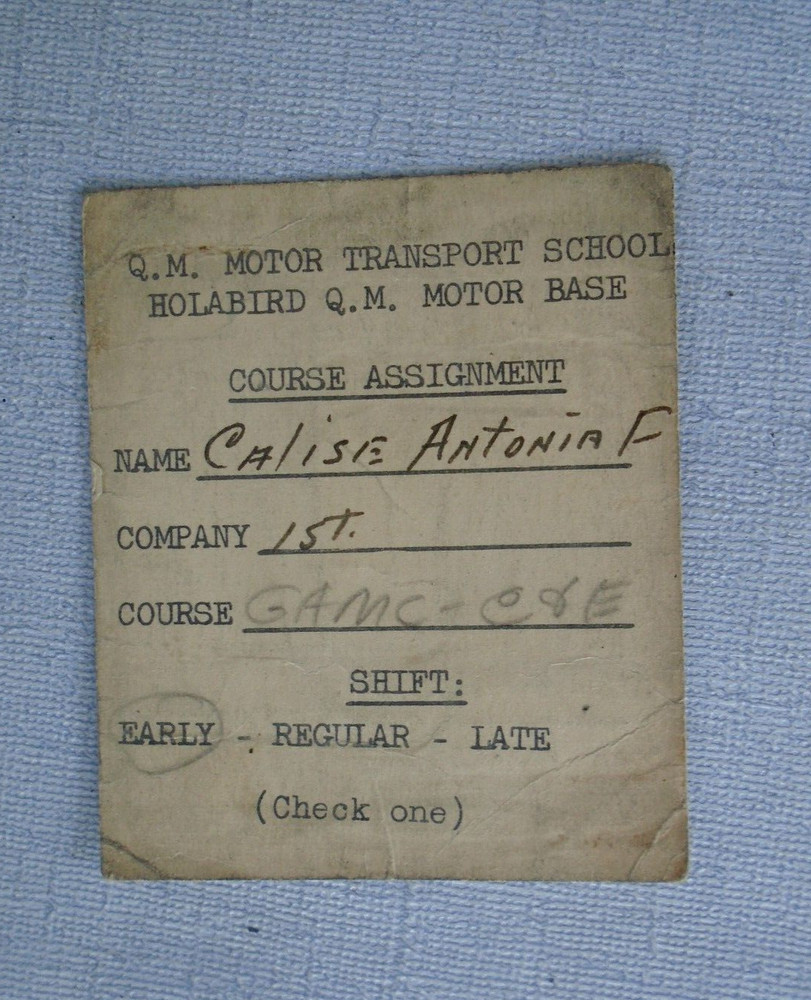 Q.M. MOTOR TRANSPORT SCHOOL
HOLABIRD Q.M. MOTOR BASE
COURSE ASSIGNMENT
NAME CAlISE ANTONIA F
COMPANY 1ST.
COURSE GAMC - C & E
SHIFT:
EARLY - REGULAR - LATE
(Check one)